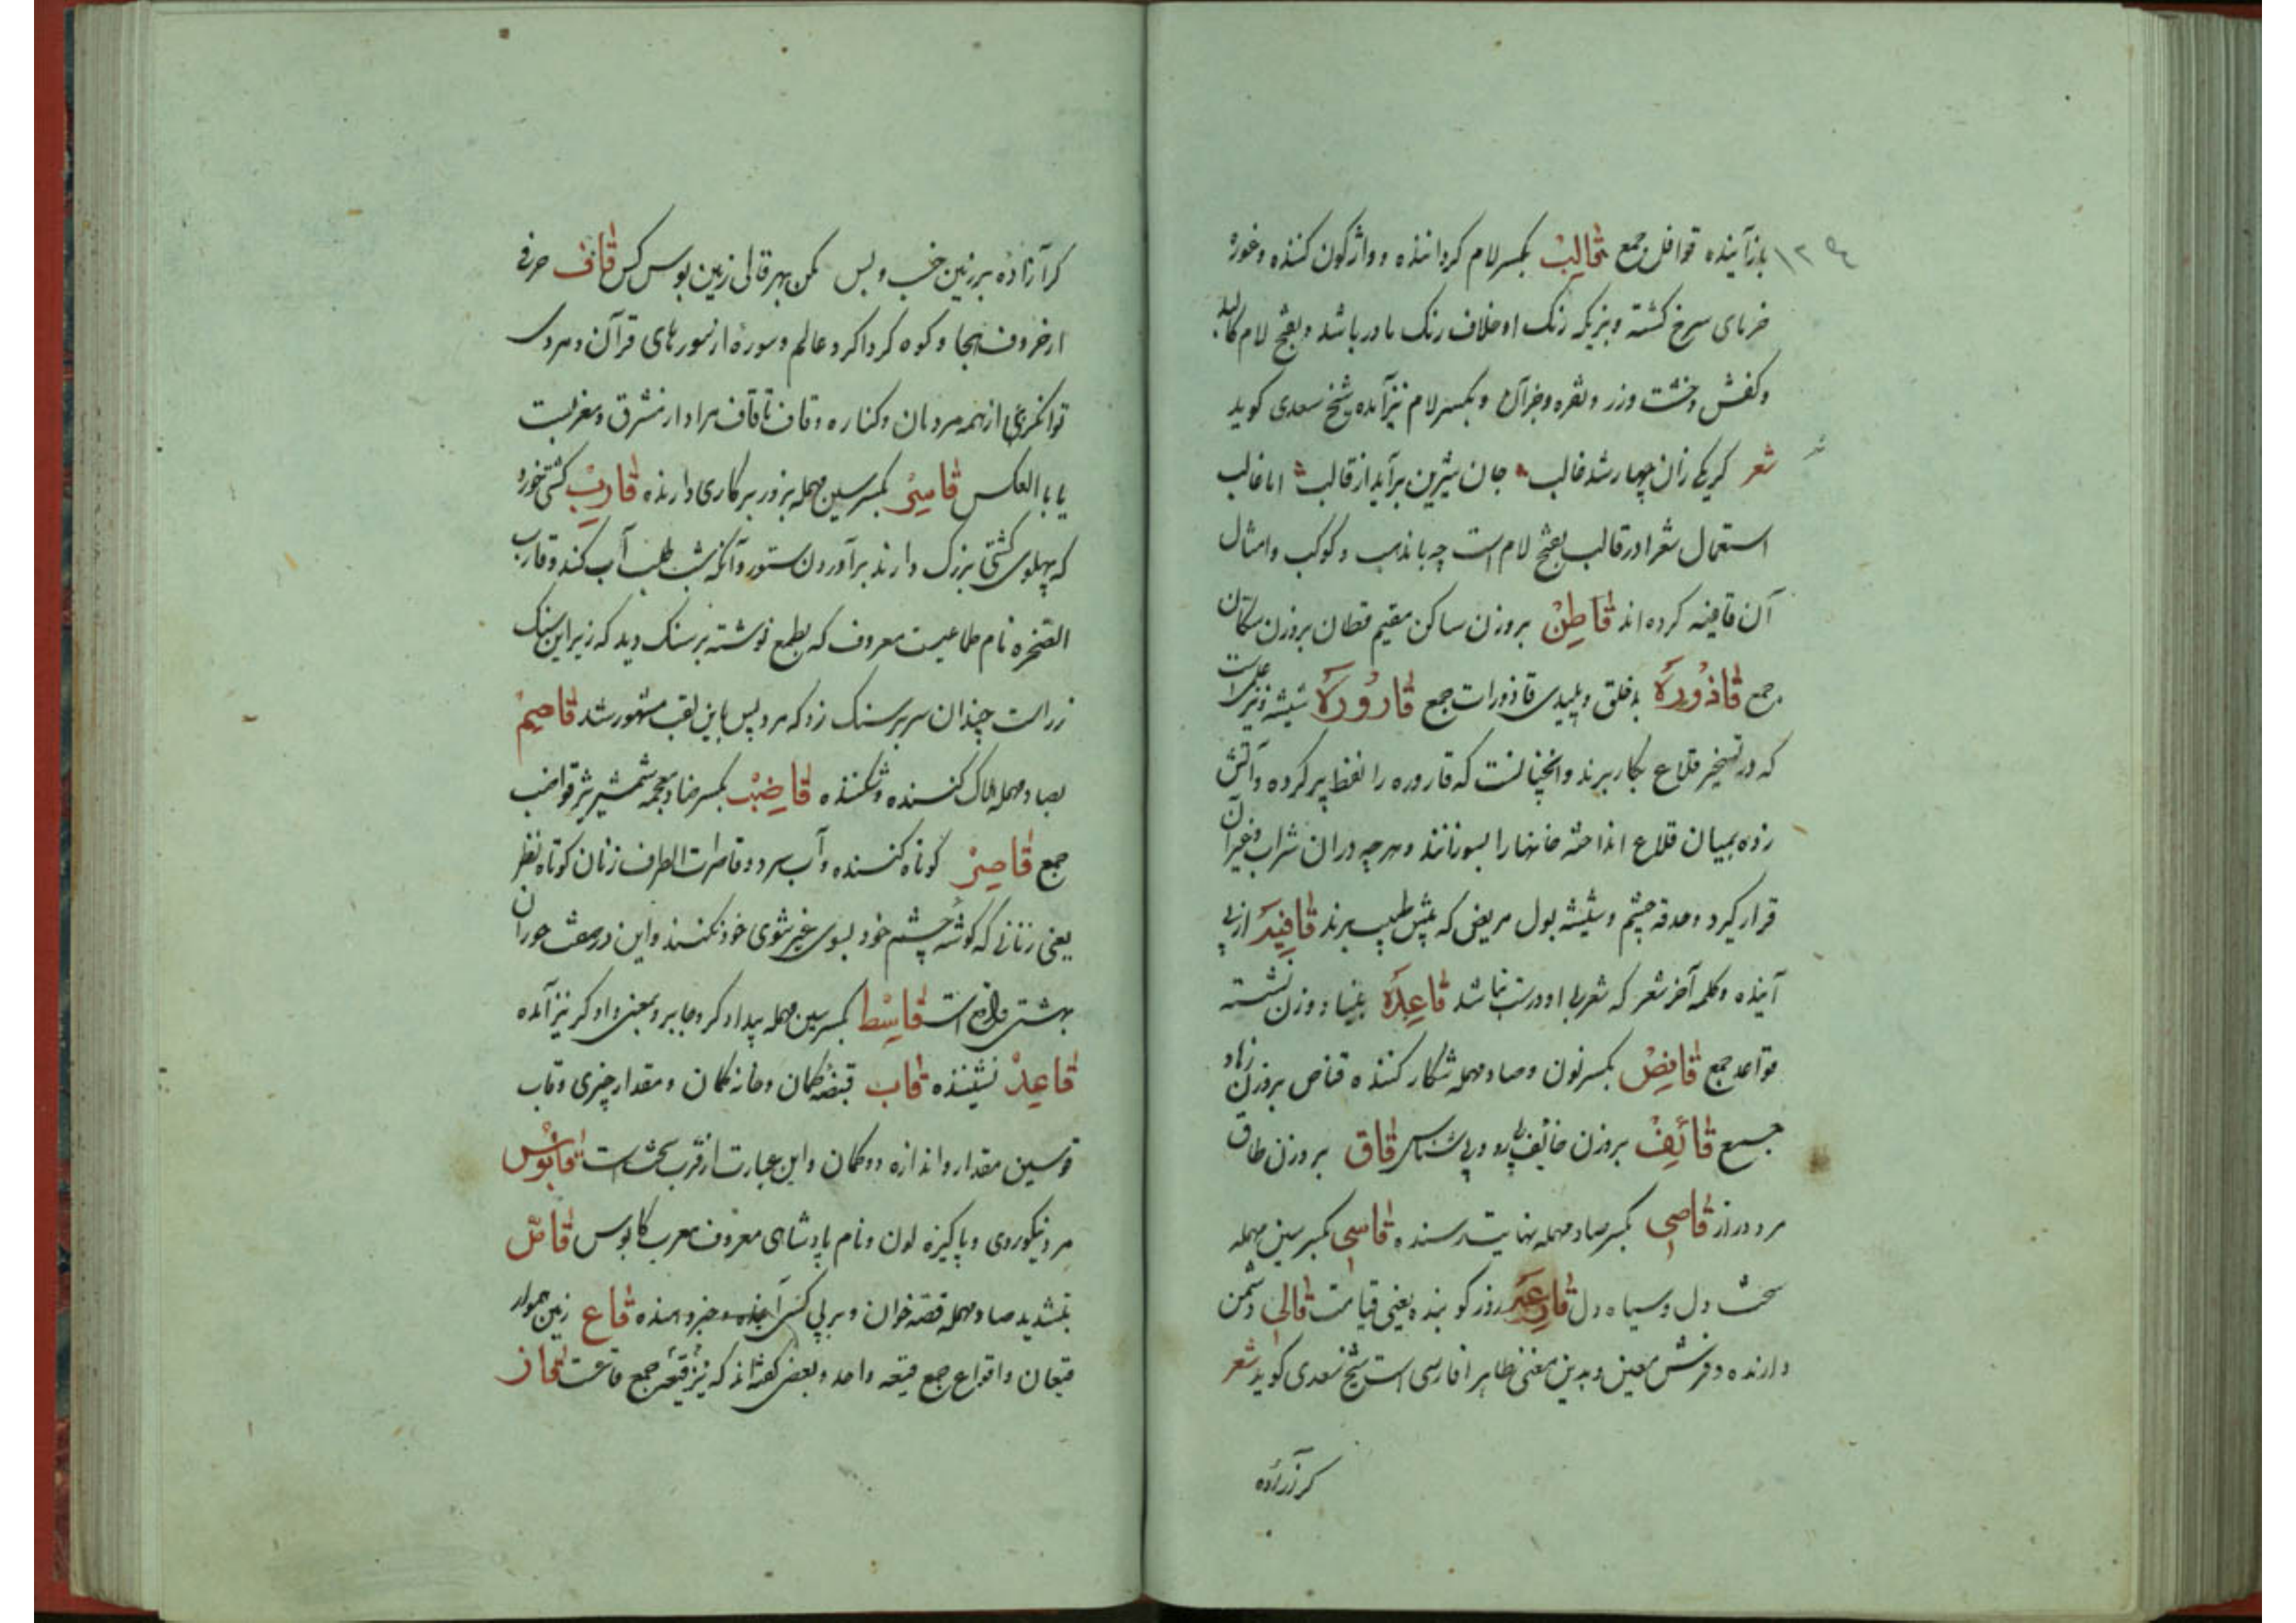 بازآینده قوافل جمع قالِبْ بکسر لام کرداننده و واژکون کننده و غوره
خرمای سرخ کشته و بزیکه رنک او خلاف رنک مادر باشد و بفتح لام کالبد
و کفش و خشت و زر و نقره و جز آن و بکسر لام نیز آمده شیخ سعدی کوید
شعر کر یکی زان چهار شد غالب جان شیرین برآید از قالب اما غالب
استعمال شعرا در قالب بفتح لام است چه با مذهب و کوکب و امثال
آن قافیه کرده اند قاطِنْ بروزن ساکن مقیم قطان بروزن سکان
جمع قاذُورَه بدخلق و پلیدی قاذورات جمع قارُورَه شیشه و نیز
که در تسخیر قلاع بکار برند و انچنانست که قاروره را نفط پر کرده و آتش
زده بمیان قلاع انداخته خانها را بسوزانند و هرچه در ان شراب و غیر آن
قرار کیرد و حدقه چشم و شیشه بول مریض که پیش طبیب برند قافِیَه از پی
آینده و کلمه آخر شعر که شعر بی او درست نباشد قاعِدَه بنیاد و زن نشسته
قواعد جمع قانِصْ بکسر نون و صاد مهمله شکار کننده قناص بروزن زهاد
جمع قائِفْ بروزن خائف پی رو و پی شناس قاق بروزن طاق
مرد دراز قاصی بکسر صاد مهمله نهایت رسنده قاسی بکسر سین مهمله
سخت دل و سیاه دل قارِعَه روز کوبنده یعنی قیامت قالی دشمن
دارنده و فرش معین و بدین معنی ظاهرا فارسی است شیخ سعدی کوید شعر
کر آزاده
کر آزاده بر زمین خسب و بس مکن بهر قالی زمین بوس کس قاف حرفی
از حروف هجا و کوه کرداکرد عالم و سوره از سورهای قرآن و مردی
توانکرتر از همه مردمان و کناره و قاف تا قاف مراد از مشرق و مغربست
یا بالعکس قاسِرْ بکسر سین مهمله بزور بر کاری دارنده قارِبْ کشتی خورد
که پهلوی کشتی بزرک دارند برآوردن ستور و آنکه شب طلب آب کند و قارب
الصخره نام طماعیست معروف که بطمع نوشته بر سنک دید که زیر این سنک
زر است چندان سر بر سنک زد که مرد پس باین لقب مشهور شد قاصِمْ
بصاد مهمله هلاک کننده و شکننده قاضِبْ بکسر ضاد معجمه شمشیر بر قواضب
جمع قاصِرْ کوتاه کننده و آب سرد و قاصرات الطرف زنان کوتاه نظر
یعنی زنانی که کوشه چشم خود بسوی غیر شوی خود نکنند و این در صفت حوران
بهشتی واقع است قاسِط بکسر سین مهمله بیدادکر و جابر و بمعنی دادکر نیز آمده
قاعِدْ نشیننده قاب قبضه کمان و خانه کمان و مقدار چیزی و قاب
قوسین مقدار و اندازه دو کمان و این عبارت از قرب سخت است قابُوس
مرد نیکوروی و پاکیزه لون و نام پادشاهی معروف معرب کابوس قاصّ
بتشدید صاد مهمله قصه خوان و بر پی کسی و خبر دهنده قاع زمین هموار
قیعان و اقواع جمع قیعه واحد و بعضی کفته اند که نیز قیعه جمع قاعست قاز